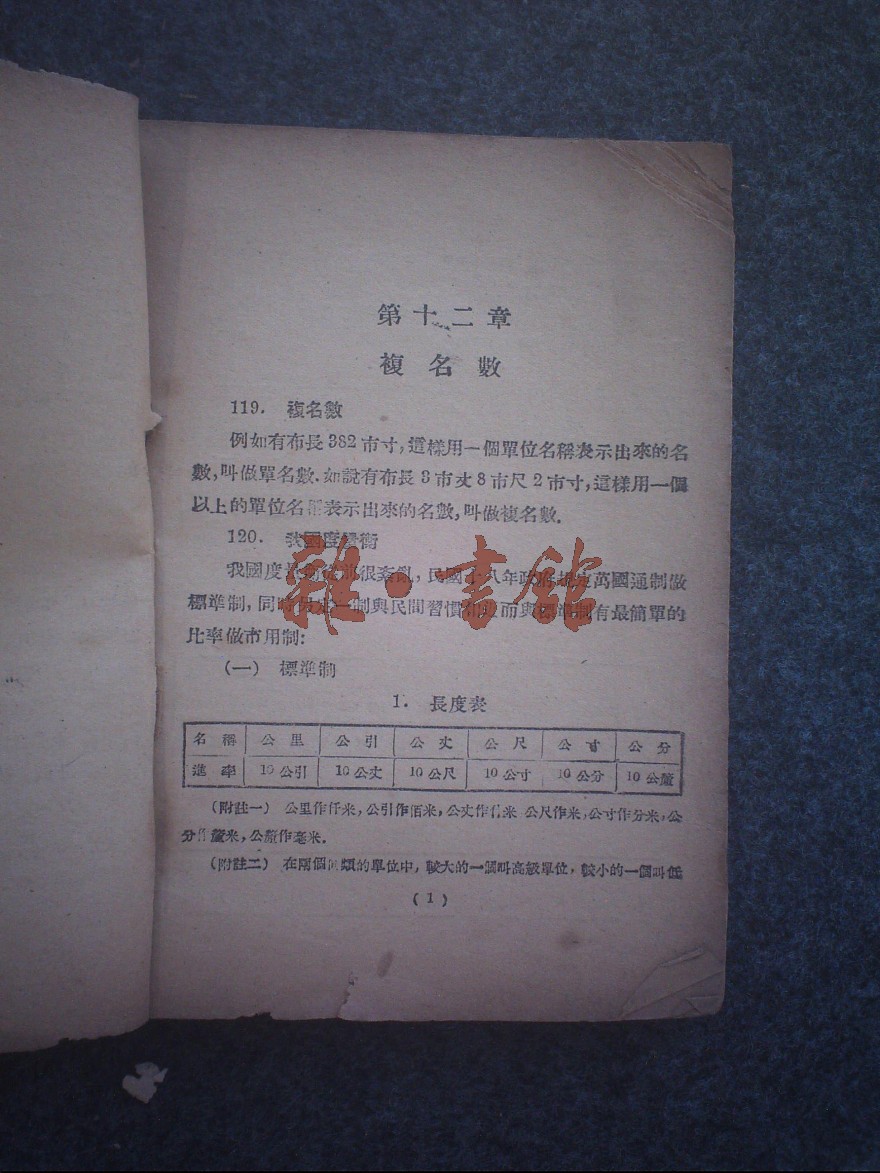 第十二章
複名數
119. 複名數
例如有布長382市寸,這樣用一個單位名稱表示出來的名
數,叫做單名數.如說有布長3市丈8市尺2市寸,這樣用一個
以上的單位名 表示出來的名數,叫做複名數.
120. 我國度量衡
我國度量衡從前很紊亂,民國十八年政府 定萬國通制做
標準制,同時 定一制與民間習慣相近而與標準制有最簡單的
比率做市用制:
雜·書館
(一) 標準制
1. 長度表
名稱 公里 公引 公丈 公尺 公寸 公分
進率 10公引 10公丈 10公尺 10公寸 10公分 10公釐
(附註一) 公里作仟米,公引作佰米,公丈作什米 公尺作米,公寸作分米,公
分作釐米,公釐作毫米.
(附註二) 在兩個同類的單位中,較大的一個叫高級單位,較小的一個叫低
(1)